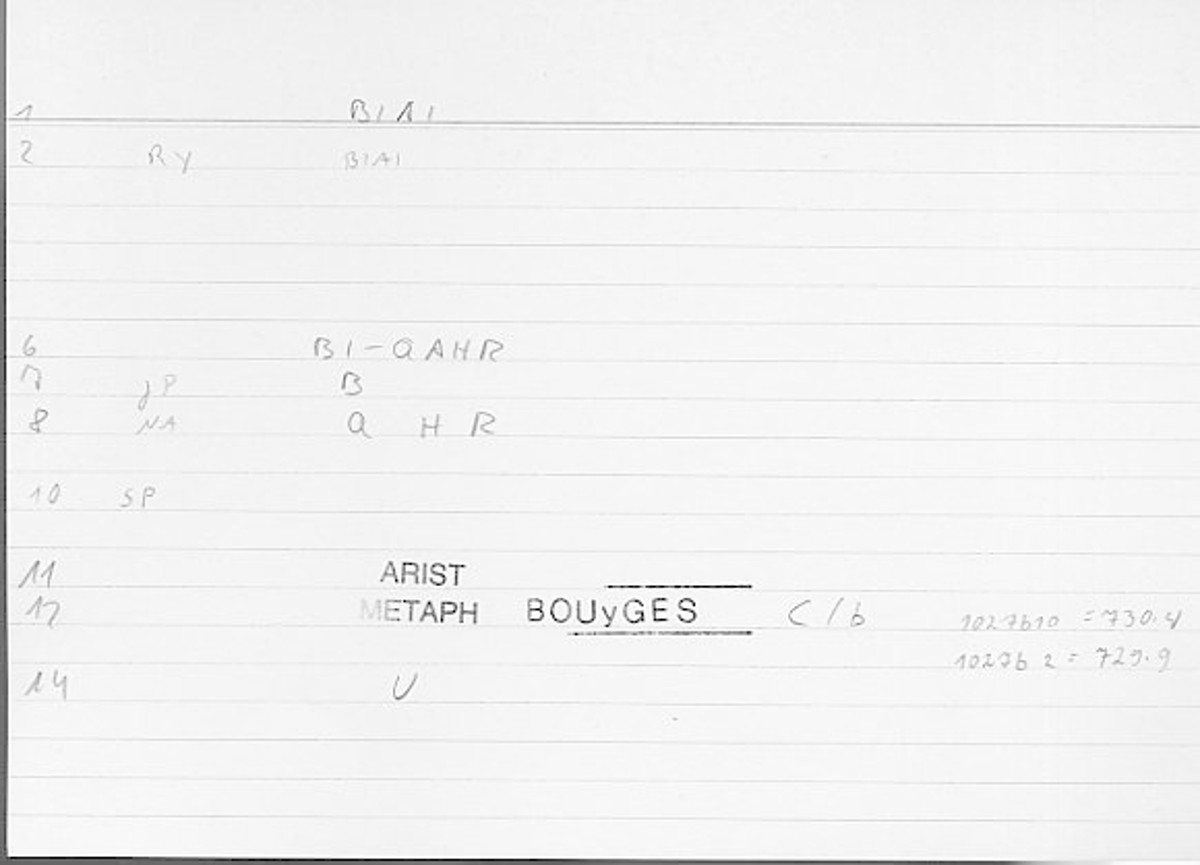 1 BIAI
2 RY BIAI
6 BI-QAHR
7 JP B
8 NA Q H R
10 SP
11 ARIST
12 METAPH BOUyGES C/b 1027b10 = 730.4
1027b 2 = 729.9
14 U